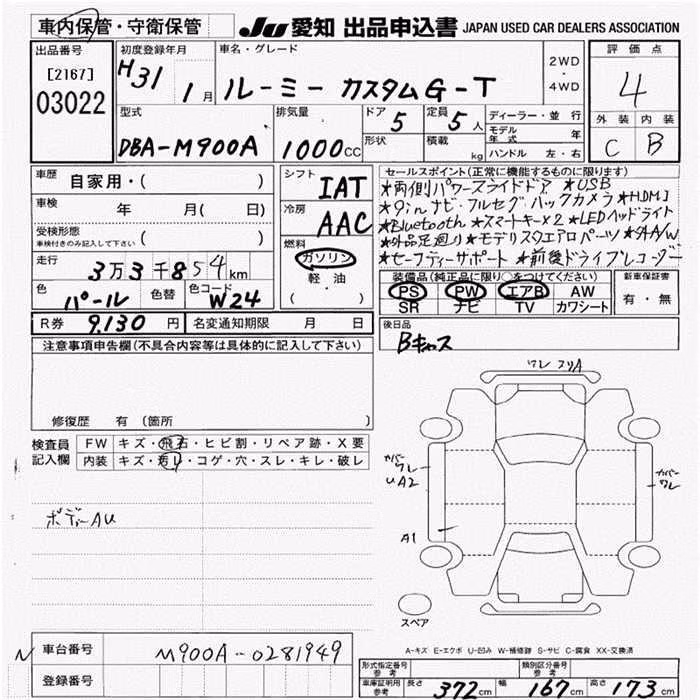 車内保管・守衛保管
JU 愛知 出品申込書 JAPAN USED CAR DEALERS ASSOCIATION
出品番号
[2167]
03022
初度登録年月
H31 1月
車名・グレード
ルーミー カスタムG-T
2WD
・
4WD
評価点
4
外装 内装
C B
型式
DBA-M900A
排気量
1000CC
ドア 5
形状
定員 5人
積載 kg
ディーラー・並行
モデル年式 年
ハンドル 左・右
車歴 自家用・( )
車検 年 月( 日)
受検形態
車検付きのみ記入して下さい ( )
走行 3万3千854km
色 パール
色替
色コード W24
シフト IAT
冷房 AAC
燃料
ガソリン
軽・油
( ・ )
セールスポイント(正常に機能するものに限ります)
★両側パワースライドドア ★USB
★9inナビ・フルセグ バックカメラ★HDMI
★Bluetooth ★スマートキー×2 ★LEDヘッドライト
★外品足廻り★モデリスタエアロパーツ★外A/W
★セーフティーサポート ★前後ドライブレコーダー
装備品(純正品に限り○をつけてください)
PS PW エアB AW
SR ナビ TV カワシート
新車保証書
有・無
R券 9,130円
名変通知期限 月 日
後日品
Bキャス
注意事項申告欄(不具合内容等は具体的に記入して下さい)
修復歴 有 (箇所 )
検査員
記入欄
FW キズ・飛石・ヒビ割・リペア跡・X要
内装 キズ・汚れ・コゲ・穴・スレ・キレ・破レ
ボディーAU
ワレ スリA
カバー
ワレ
UA2
カバー
ワレ
A1
スペア
A-キズ E-エクボ U-凹み W-補修跡 S-サビ C-腐食 XX-交換済
N
車台番号 M900A-0281949
登録番号
形式指定番号
参考
類別区分番号
参考
車庫証明用
参考
長さ 372cm 幅 167cm 高さ 173cm